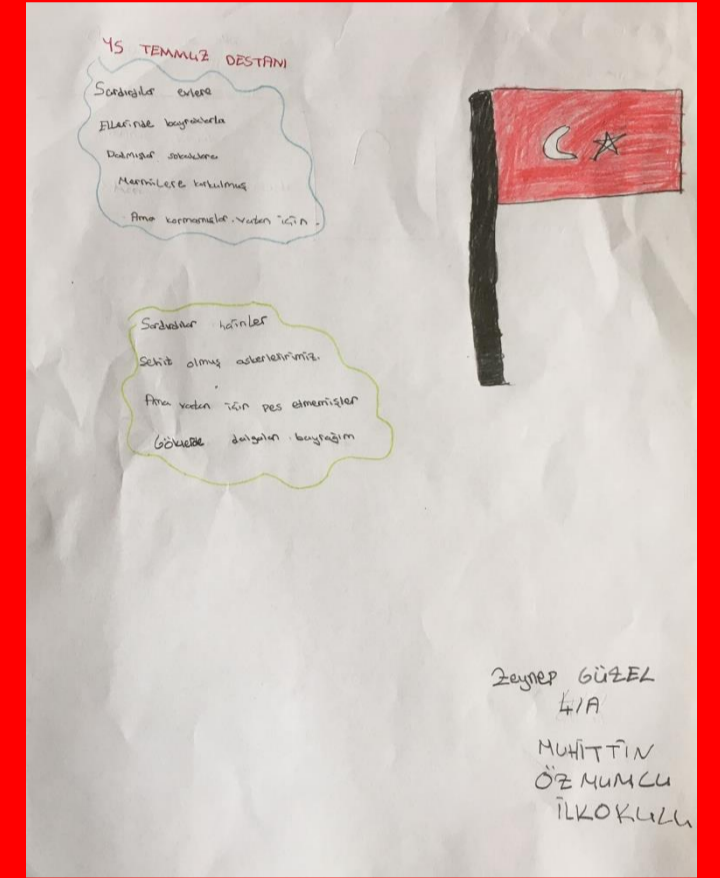 15 TEMMUZ DESTANI
Sardırdılar evlere
Ellerinde bayraklarla
sokaklara
Mermilere
Ama korkmamışlar vatan için.
Sardırdılar hainler
Şehit olmuş askerlerimiz.
Ama vatan için pes etmemişler
Göklerde dalgalan bayrağım
Zeynep GÜZEL
4/A
MUHİTTİN
ÖZMUMCU
İLKOKULU